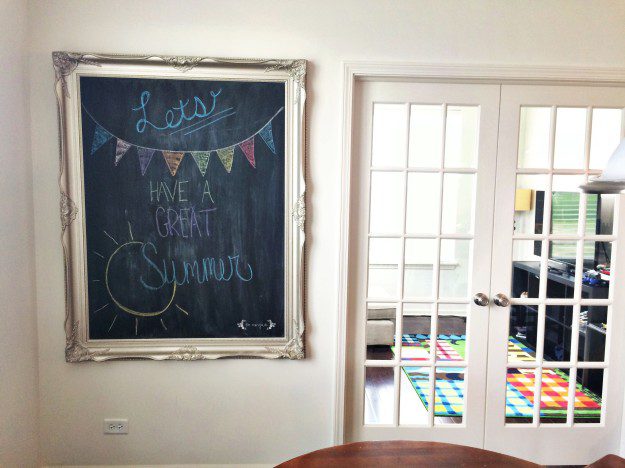 Lets'
HAVE A
GREAT
Summer